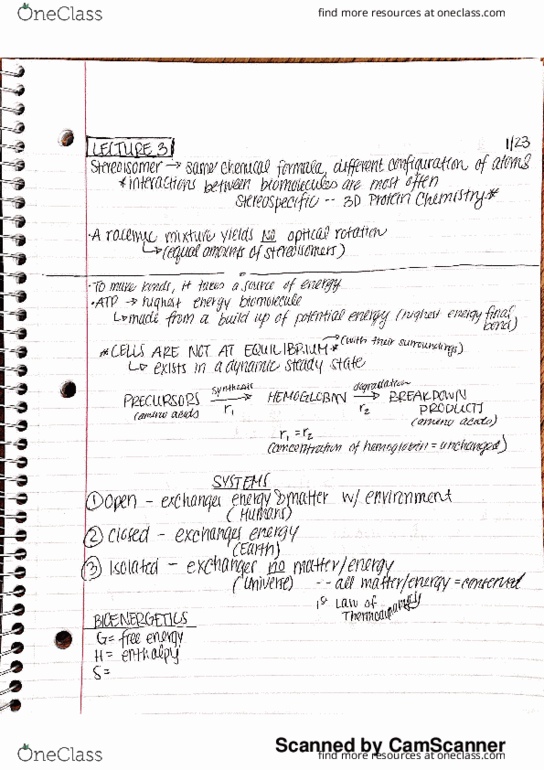 OneClass
find more resources at oneclass.com
LECTURE 3
1/23
Stereoisomer → same chemical formula, different configuration of atoms
*interactions between biomolecules are most often
stereospecific -- 3D Protein Chemistry*
·A racemic mixture yields NO optical rotation
↳(equal amounts of stereoisomers)
·To make bonds, it takes a source of energy
·ATP → highest energy biomolecule
↳made from a build up of potential energy (highest energy final bond)
*CELLS ARE NOT AT EQUILIBRIUM* → (with their surroundings)
↳ exists in a dynamic steady state
PRECURSORS synthesis → r₁ HEMOGLOBAN degradation → r₂ BREAKDOWN
(amino acids) PRODUCTS
(amino acids)
r₁ = r₂
(concentration of hemoglobin = unchanged)
SYSTEMS
① Open - exchanges energy & matter w/ environment
(Humans)
② Closed - exchanges energy
(Earth)
③ Isolated - exchanges no matter/energy
(Universe) -- all matter/energy = conserved
1st Law of
Thermodynamics
BIOENERGETICS
G= free energy
H= enthalpy
S=
Scanned by CamScanner
OneClass
find more resources at oneclass.com